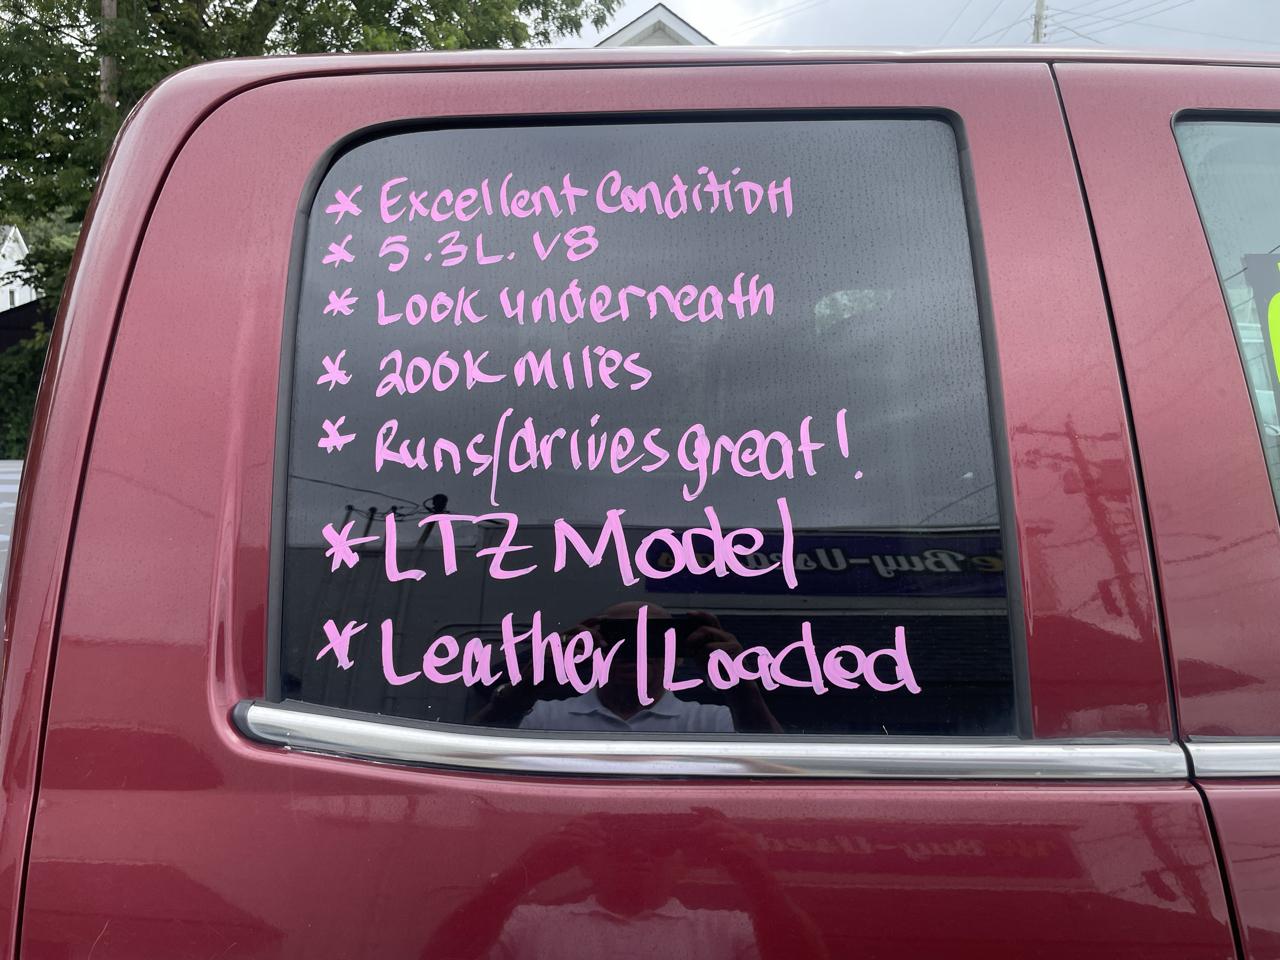 * Excellent Condition
* 5.3L. V8
* Look underneath
* 200K miles
* Runs/drives great!
* LTZ Model
* Leather/Loaded
Buy-Used